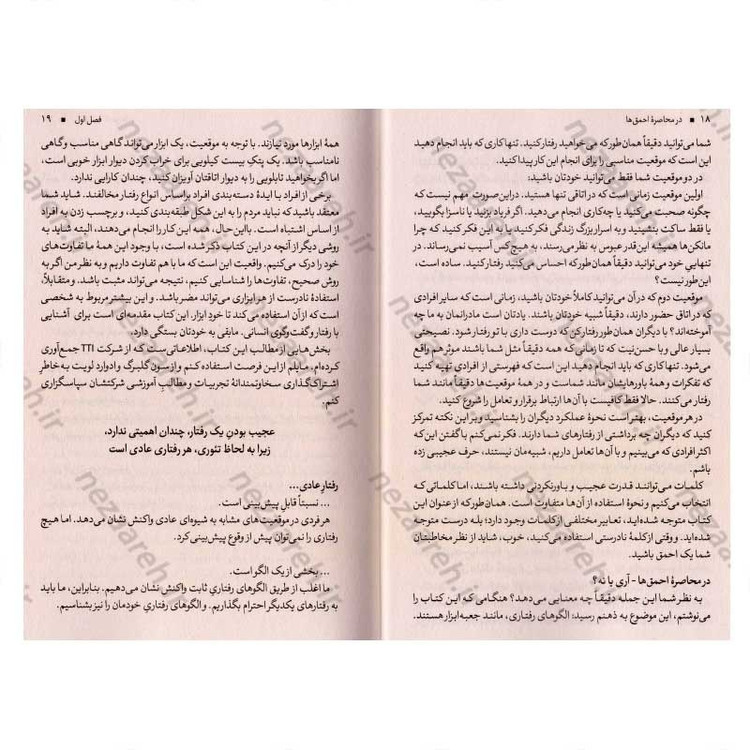 ۱۸ ■ در محاصرهٔ احمق‌ها
شما می‌توانید دقیقاً همان‌طور که می‌خواهید رفتار کنید. تنها کاری که باید انجام دهید
این است که موقعیت مناسبی را برای انجام این کار پیدا کنید.
در دو موقعیت شما فقط می‌توانید خودتان باشید:
اولین موقعیت زمانی است که در اتاقی تنها هستید. در این‌صورت مهم نیست که
چگونه صحبت می‌کنید یا چه‌کاری می‌دهید. اگر فریاد بزنید یا ناسزا بگویید،
یا فقط ساکت بنشینید و به اسرار بزرگ زندگی فکر کنید یا به این فکر کنید که چرا
مانکن‌ها همیشه این‌قدر عبوس به نظر می‌رسند، به هیچ‌کس آسیب نمی‌رساند. در
تنهایی خود می‌توانید دقیقاً همان‌طور که احساس می‌کنید رفتار کنید. ساده است،
این‌طور نیست؟
موقعیت دوم که در آن می‌توانید کاملاً خودتان باشید، زمانی است که سایر افرادی
که در اتاق حضور دارند، دقیقاً شبیه شما باشند. یادتان است مادرانمان به ما چه
آموخته‌اند؟ با دیگران همان‌طور رفتار کن که دوست داری با تو رفتار شود. نصیحتی
بسیار عالی و با حسن‌نیت که تا زمانی که همه دقیقاً مثل شما باشند موثر هم واقع
می‌شود. تنها کاری که باید انجام دهید این است که فهرستی از افرادی تهیه کنید
که تفکرات و همهٔ باورهایشان مانند شماست و در همهٔ موقعیت‌ها دقیقاً مانند شما
رفتار می‌کنند. حالا فقط کافیست با آن‌ها ارتباط برقرار و تعامل را شروع کنید.
در هر موقعیت، بهتر است نحوهٔ عملکرد دیگران را بشناسید و بر این نکته تمرکز
کنید که دیگران چه برداشتی از رفتارهای شما دارند. فکر نمی‌کنم با گفتن این‌که
اکثر افرادی که می‌بینیم و با آن‌ها تعامل داریم، شبیه‌مان نیستند، حرف عجیبی زده
باشم.
کلمات می‌توانند قدرت عجیب و باورنکردنی داشته باشند، اما کلماتی که
انتخاب می‌کنیم و نحوهٔ استفاده از آن‌ها متفاوت است. همان‌طور که از عنوان این
کتاب متوجه شده‌اید، تعابیر مختلفی از کلمات وجود دارد؛ بله درست متوجه
شده‌اید. و وقتی از کلمهٔ نادرستی استفاده می‌کنید، خوب، شاید از نظر مخاطبتان
شما یک احمق باشید.
در محاصرهٔ احمق‌ها - آری یا نه؟
به نظر شما این جمله دقیقاً چه معنایی می‌دهد؟ هنگامی که این کتاب را
می‌نوشتم، این موضوع به ذهنم رسید: الگوهای رفتاری، مانند جعبه‌ابزار هستند.
فصل اول ■ ۱۹
همهٔ ابزارها مورد نیازند. با توجه به موقعیت، یک ابزار می‌تواند گاهی مناسب و گاهی
نامناسب باشد. یک پتک بیست کیلویی برای خراب کردن دیوار ابزار خوبی است،
اما اگر بخواهید تابلویی را به دیوار اتاقتان آویزان کنید، چندان کارایی ندارد.
برخی از افراد با ایدهٔ دسته‌بندی افراد براساس انواع رفتار مخالفند. شاید شما
معتقد باشید که نباید مردم را به این شکل طبقه‌بندی کنید، و برچسب زدن به افراد
از اساس اشتباه است. با این‌حال، همه این کار را انجام می‌دهند، البته شاید به
روشی دیگر از آنچه در این کتاب ذکر شده است، با وجود این همهٔ ما تفاوت‌های
خود را درک می‌کنیم. واقعیت این است که ما با هم تفاوت داریم و به نظر من اگر به
روش صحیح، تفاوت‌ها را شناسایی کنیم، نتیجه می‌تواند مثبت باشد. و متقابلاً،
استفادهٔ نادرست از هر ابزاری می‌تواند مضر باشد. و این بیشتر مربوط به شخصی
است که از آن استفاده می‌کند تا خود ابزار. این کتاب مقدمه‌ای است برای آشنایی
با رفتار و گفت‌وگوی انسانی. مابقی به خودتان بستگی دارد.
بخش‌هایی از مطالب این کتاب، اطلاعاتی ست که از شرکت TTI جمع‌آوری
کرده‌ام. مایلم از این فرصت استفاده کنم و از سون گلبرگ و ادوارد لویت به خاطر
اشتراک‌گذاری سخاوتمندانهٔ تجربیات و مطالب آموزشی شرکتشان سپاسگزاری
کنم.
عجیب بودنِ یک رفتار، چندان اهمیتی ندارد،
زیرا به لحاظ تئوری، هر رفتاری عادی است
رفتارِ عادی...
... نسبتاً قابل پیش‌بینی است.
هر فردی در موقعیت‌های مشابه به شیوه‌ای عادی واکنش نشان می‌دهد. اما هیچ
رفتاری را نمی‌توان پیش از وقوع پیش‌بینی کرد.
... بخشی از یک الگو است.
ما اغلب از طریق الگوهای رفتاری ثابت واکنش نشان می‌دهیم. بنابراین، ما باید
به رفتارهای یکدیگر احترام بگذاریم. و الگوهای رفتاریِ خودمان را نیز بشناسیم.
nezaareh.ir